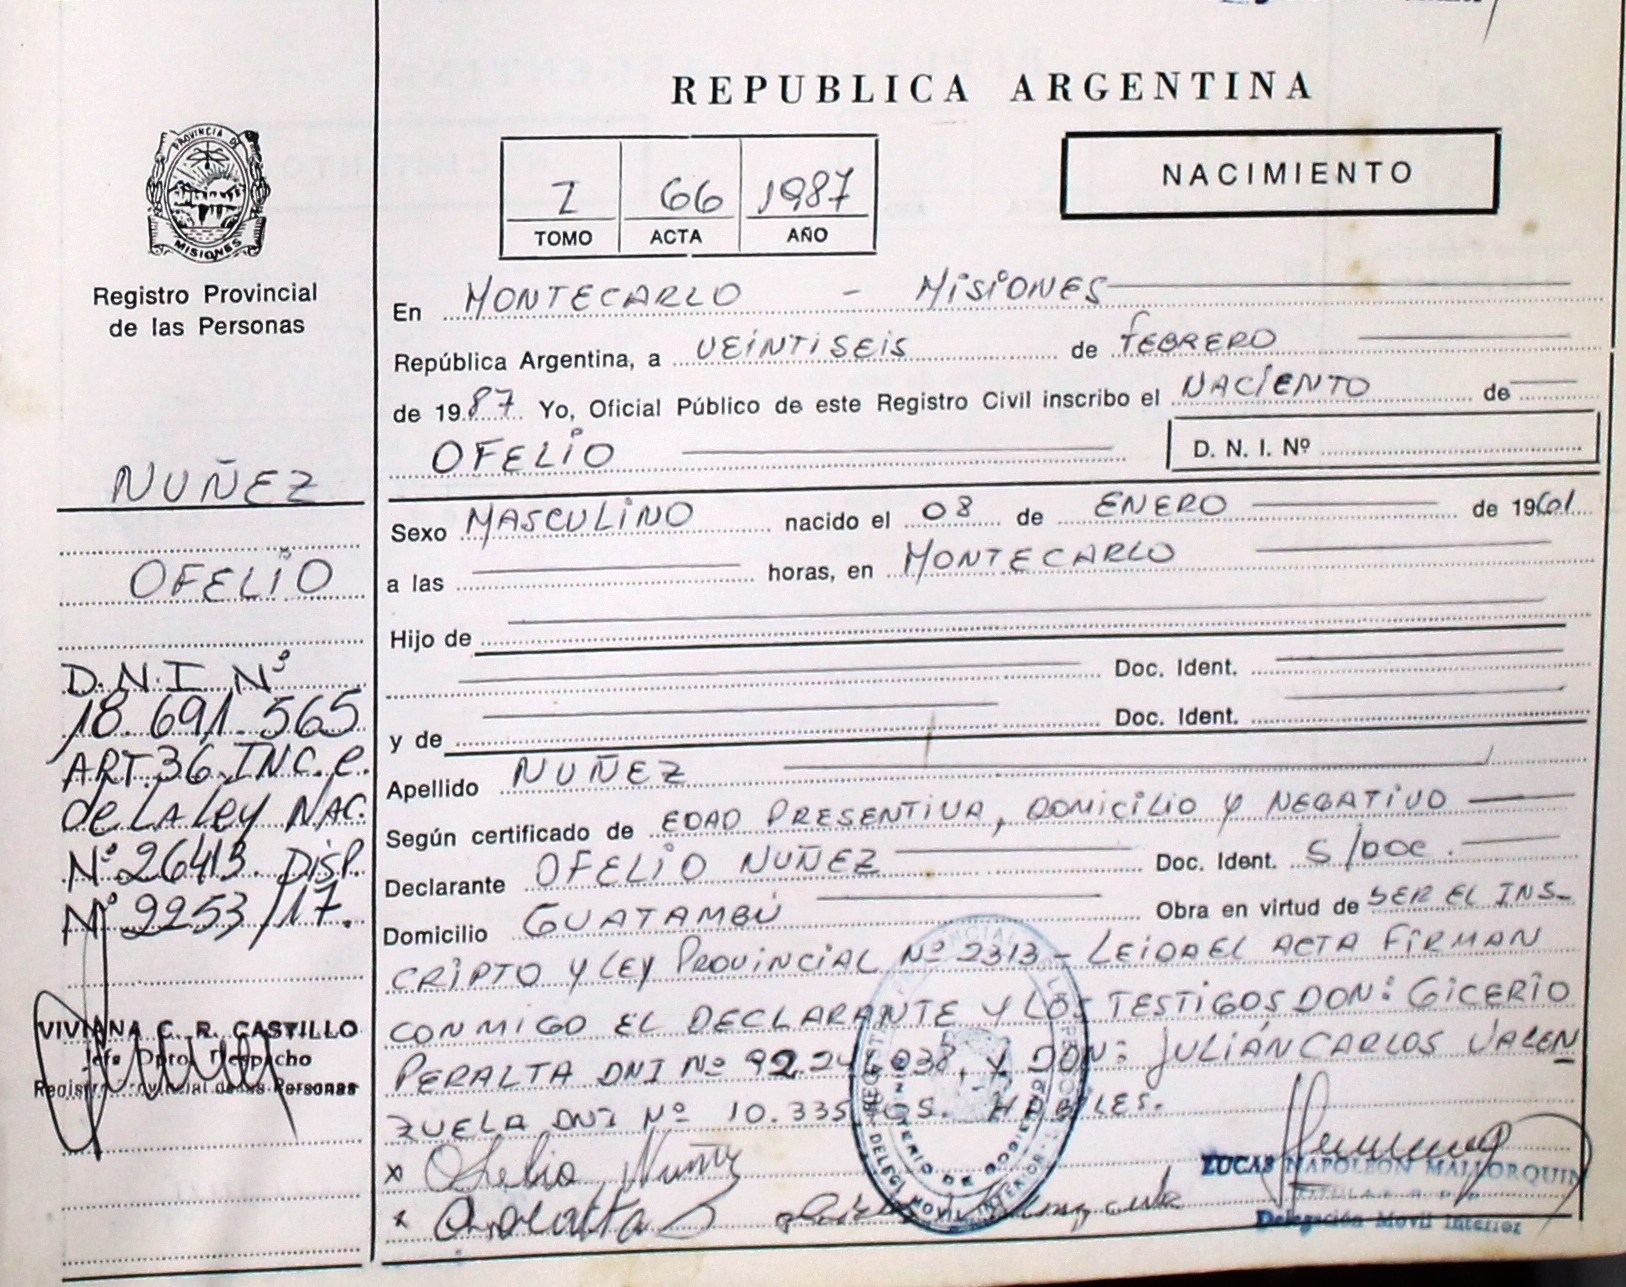 REPUBLICA ARGENTINA
PROVINCIA DE
MISIONES
Registro Provincial
de las Personas
I 66 1987
TOMO ACTA AÑO
NACIMIENTO
En MONTECARLO - MISIONES
República Argentina, a VEINTISEIS de FEBRERO
de 1987 Yo, Oficial Público de este Registro Civil inscribo el NACIENTO de
OFELIO D. N. I. Nº
Sexo MASCULINO nacido el 08 de ENERO de 1961
a las horas, en MONTECARLO
Hijo de
Doc. Ident.
y de Doc. Ident.
Apellido NUÑEZ
Según certificado de EDAD PRESENTIVA, DOMICILIO Y NEGATIVO
Declarante OFELIO NUÑEZ Doc. Ident. S/DOC.
Domicilio GUATAMBÚ Obra en virtud de SER EL INS-
CRIPTO Y LEY PROVINCIAL Nº 2313 - LEIDA EL ACTA FIRMAN
CONMIGO EL DECLARANTE Y LOS TESTIGOS DON: GICERIO
PERALTA DNI Nº 92.24 038, Y DON: JULIÁN CARLOS VALEN
ZUELA DNI Nº 10.335 HABILES.
x Ofelio Nuñez
x
LUCAS NAPOLEON MALLORQUIN
TITULAR
Delegación Movil Interior
MINISTERIO DE GOBIERNO
NUÑEZ
OFELIO
D.N.I Nº
18.691.565
ART.36.INC.e.
de LA Ley NAC.
Nº 26413. DISP.
Nº 2253/17.
VIVIANA C. R. CASTILLO
Jefa Dpto. Despacho
Registro Provincial de las Personas